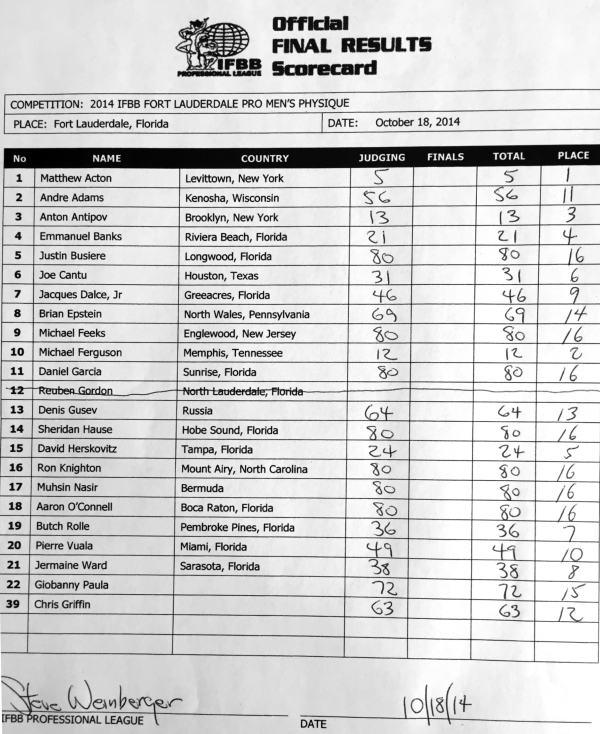 IFBB
PROFESSIONAL LEAGUE
Official
FINAL RESULTS
Scorecard
COMPETITION: 2014 IFBB FORT LAUDERDALE PRO MEN'S PHYSIQUE
PLACE: Fort Lauderdale, Florida DATE: October 18, 2014
No NAME COUNTRY JUDGING FINALS TOTAL PLACE
1 Matthew Acton Levittown, New York 5 5 1
2 Andre Adams Kenosha, Wisconsin 56 56 11
3 Anton Antipov Brooklyn, New York 13 13 3
4 Emmanuel Banks Riviera Beach, Florida 21 21 4
5 Justin Busiere Longwood, Florida 80 80 16
6 Joe Cantu Houston, Texas 31 31 6
7 Jacques Dalce, Jr Greeacres, Florida 46 46 9
8 Brian Epstein North Wales, Pennsylvania 69 69 14
9 Michael Feeks Englewood, New Jersey 80 80 16
10 Michael Ferguson Memphis, Tennessee 12 12 2
11 Daniel Garcia Sunrise, Florida 80 80 16
12 Reuben Gordon North Lauderdale, Florida
13 Denis Gusev Russia 64 64 13
14 Sheridan Hause Hobe Sound, Florida 80 80 16
15 David Herskovitz Tampa, Florida 24 24 5
16 Ron Knighton Mount Airy, North Carolina 80 80 16
17 Muhsin Nasir Bermuda 80 80 16
18 Aaron O'Connell Boca Raton, Florida 80 80 16
19 Butch Rolle Pembroke Pines, Florida 36 36 7
20 Pierre Vuala Miami, Florida 49 49 10
21 Jermaine Ward Sarasota, Florida 38 38 8
22 Giobanny Paula 72 72 15
39 Chris Griffin 63 63 12
Steve Weinberger 10/18/14
IFBB PROFESSIONAL LEAGUE DATE